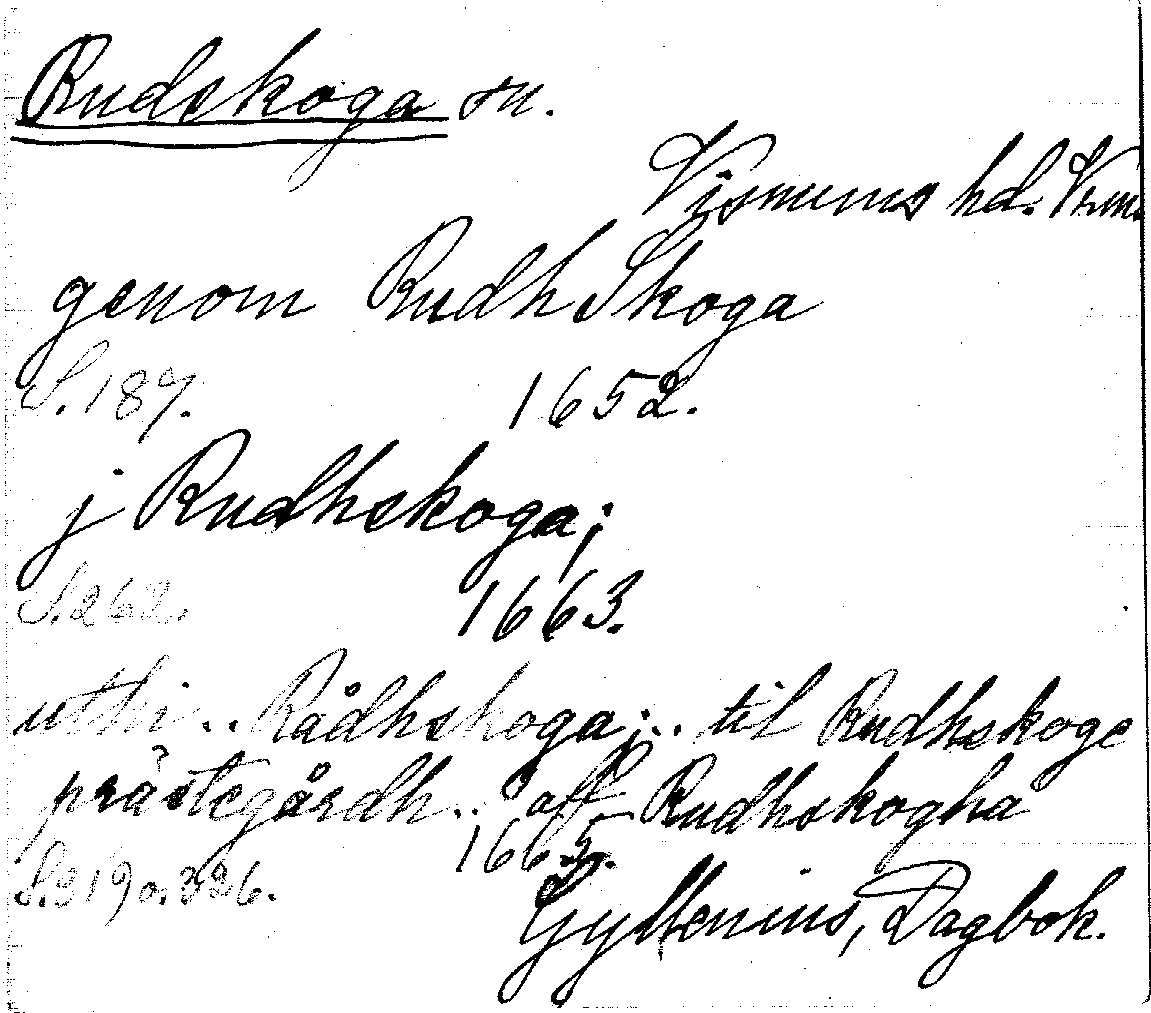 Rudskoga sn.
Visnums hd. Vrml.
genom RudhSkoga
S. 187. 1652.
j Rudhskoga;
S. 262. 1663.
uthi .. Rådhskoga; .. til Rudhskoge
prästegårdh .. aff Rudhskogha
S. 319 o. 326. 1665.
Gyllenius, Dagbok.